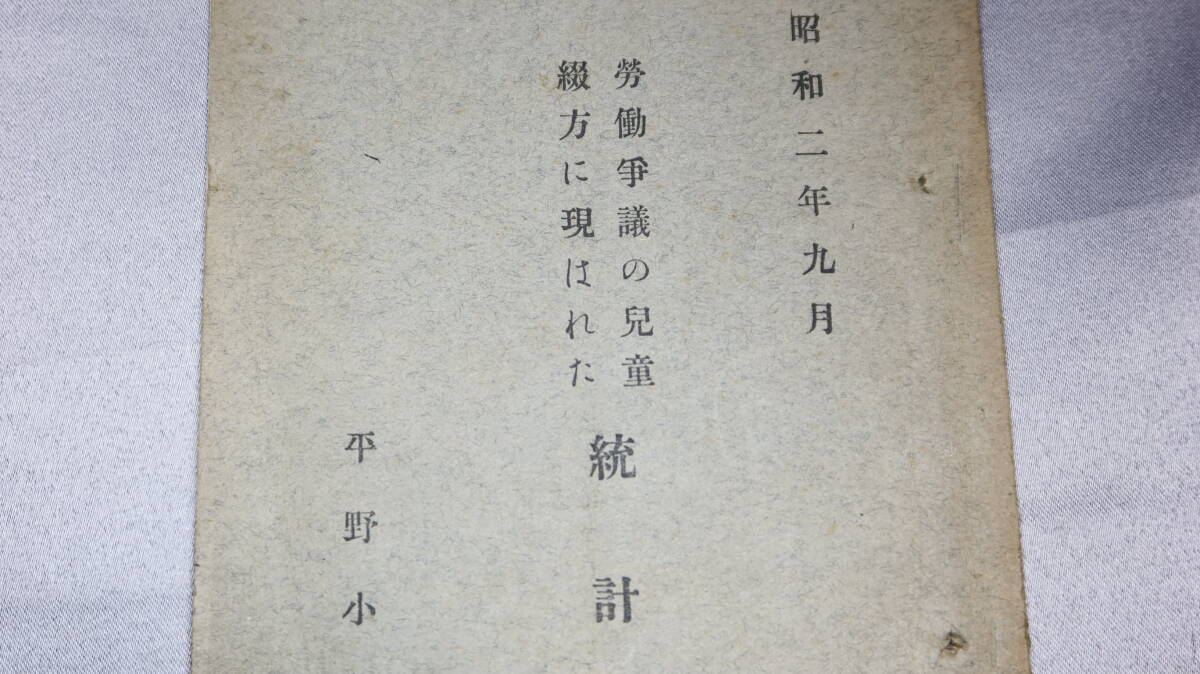 昭和二年九月
勞働爭議の兒童
綴方に現はれた
統計
平野小